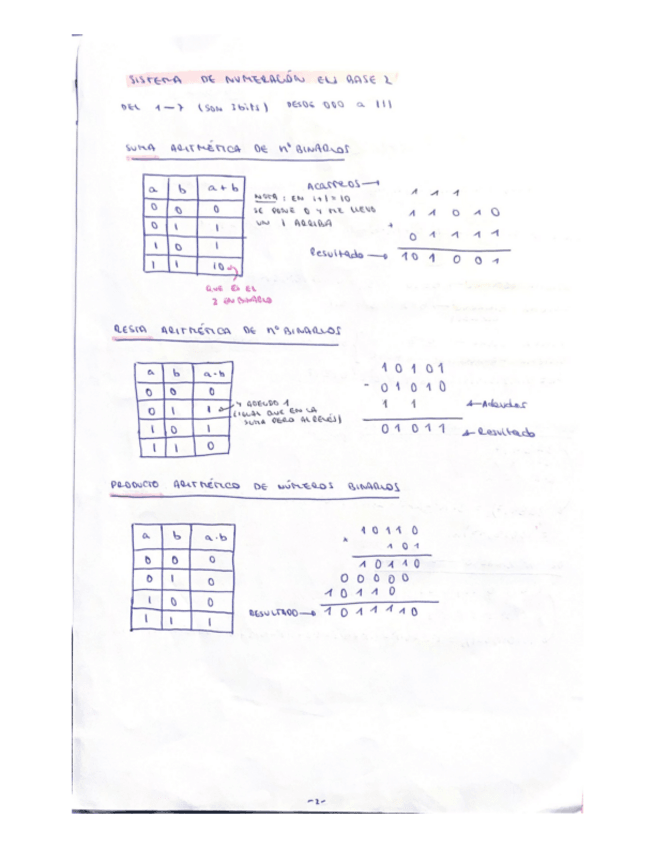 SISTEMA DE NUMERACIÓN EN BASE 2
DEL 1→7 (SON 3bits) DESDE 000 a 111
SUMA ARITMÉTICA DE nº BINARIOS
a b a+b
0 0 0
0 1 1
1 0 1
1 1 10
QUE ES EL
2 EN BINARIO
NOTA: EN 1+1=10
SE PONE 0 Y ME LLEVO
UN 1 ARRIBA
Acarreos → 1 1 1
1 1 0 1 0
+ 0 1 1 1 1
Resultado → 1 0 1 0 0 1
RESTA ARITMÉTICA DE nº BINARIOS
a b a-b
0 0 0
0 1 1
1 0 1
1 1 0
Y ADEUDO 1
(IGUAL QUE EN LA
SUMA PERO AL REVÉS)
1 0 1 0 1
- 0 1 0 1 0
1 1 ← Adeudos
0 1 0 1 1 ← Resultado
PRODUCTO ARITMÉTICO DE NÚMEROS BINARIOS
a b a·b
0 0 0
0 1 0
1 0 0
1 1 1
1 0 1 1 0
x 1 0 1
1 0 1 1 0
0 0 0 0 0
1 0 1 1 0
RESULTADO → 1 0 1 1 1 1 0
-2-